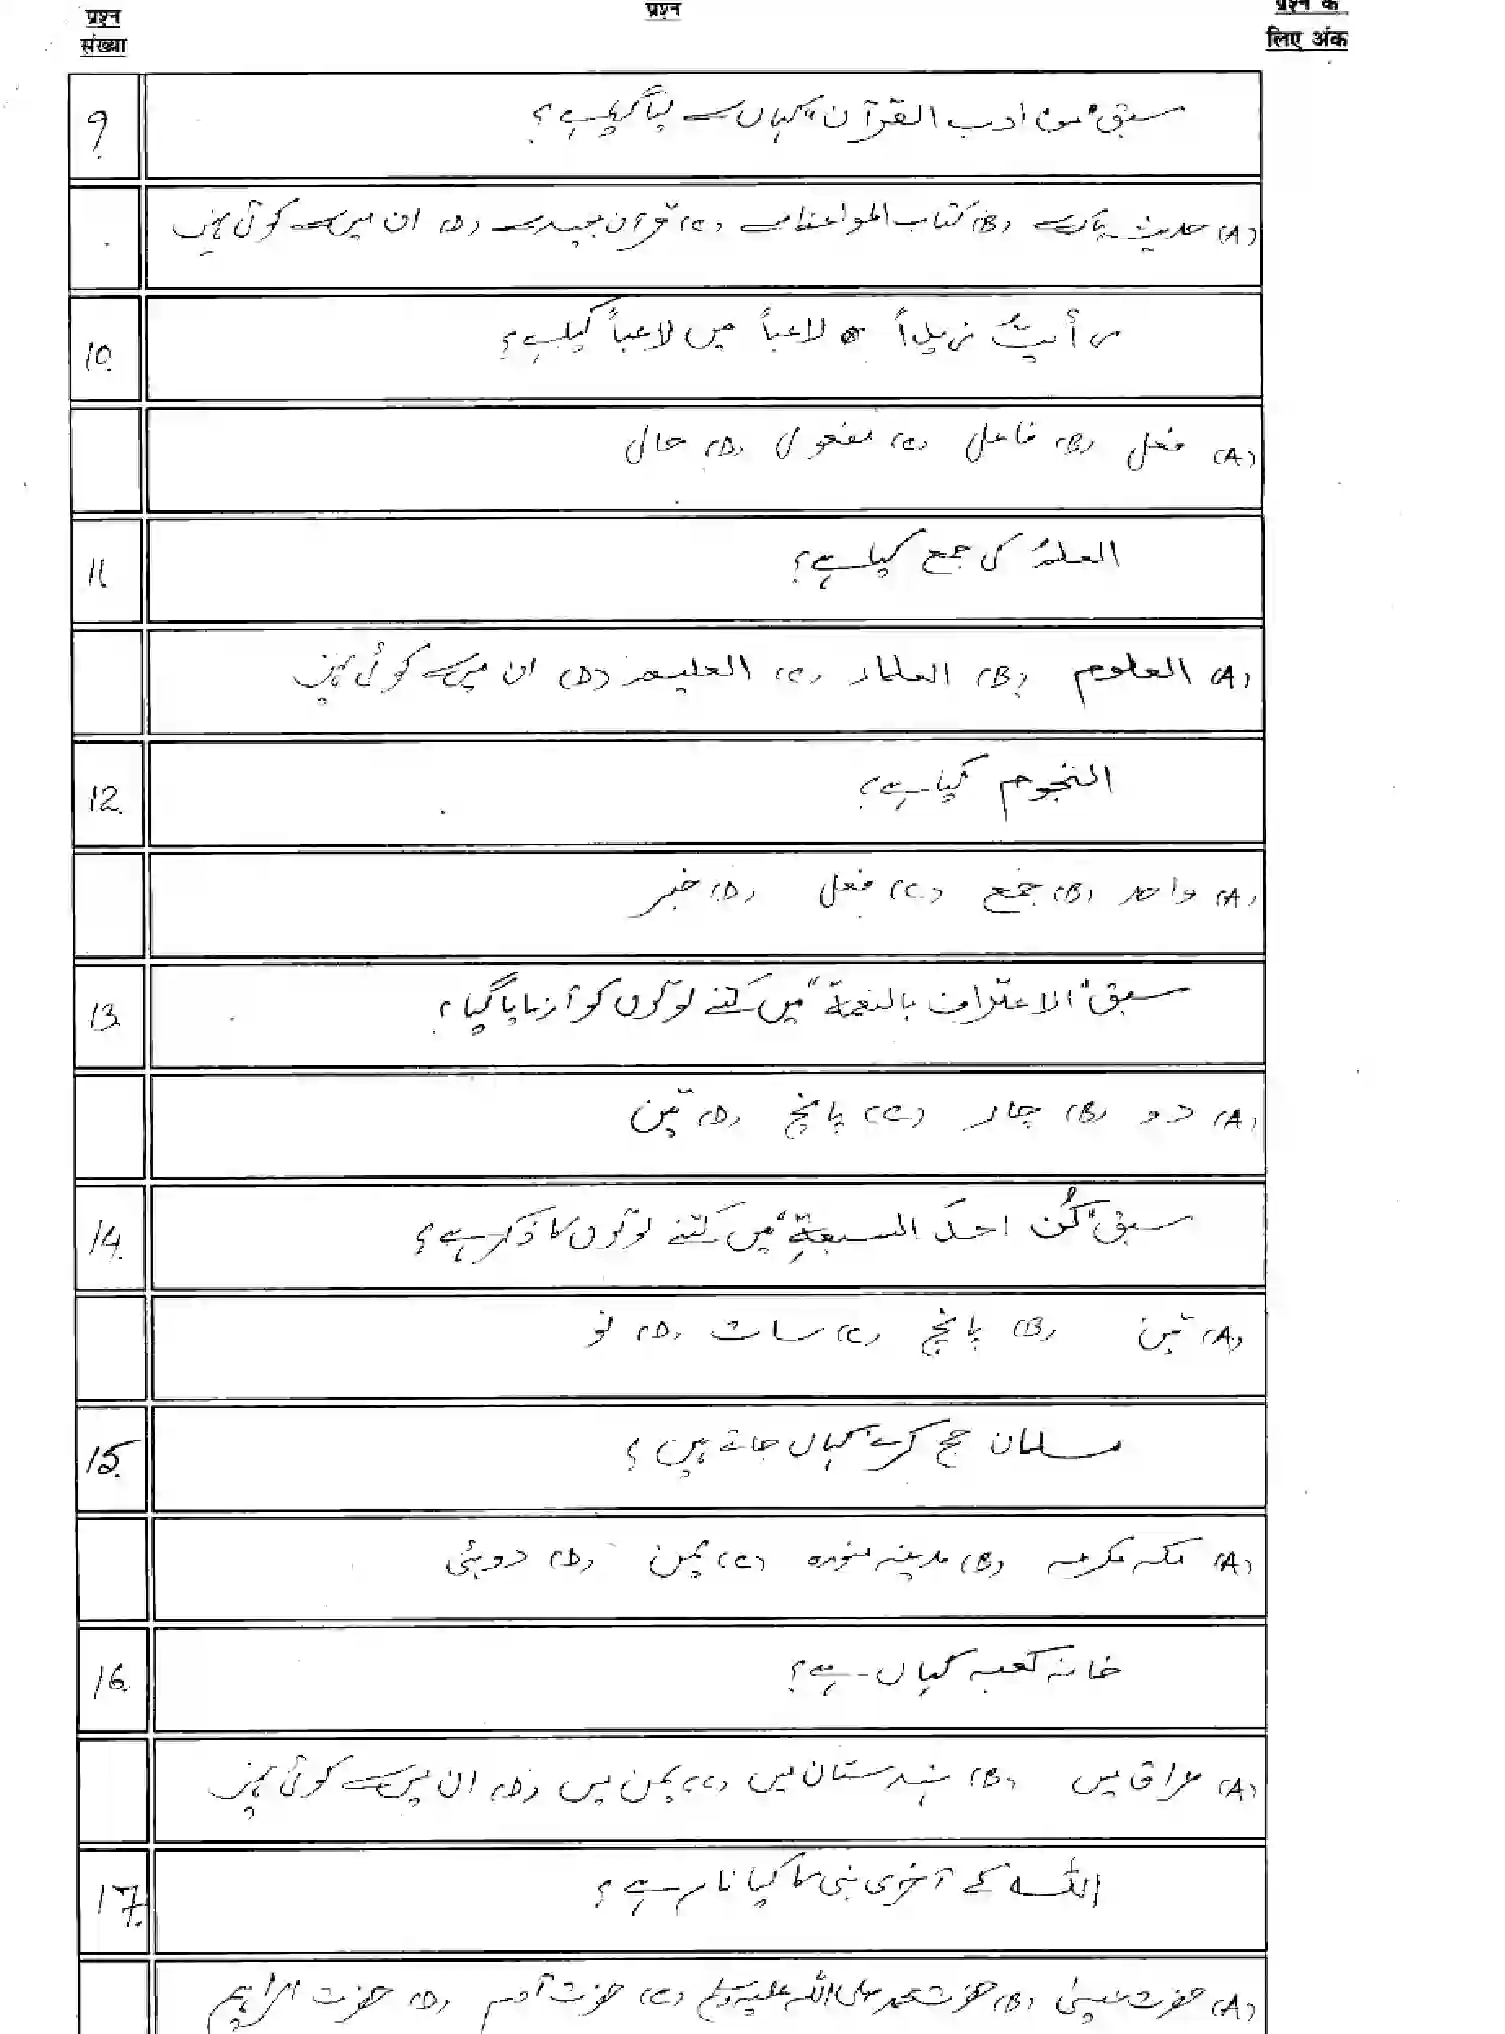 प्रश्न संख्या
प्रश्न
प्रश्न के लिए अंक
9. سبق "من ادب القرآن" کہاں سے لیا گیا ہے؟
(A) حدیث پاک سے (B) کتاب المواعظ سے (C) قرآن مجید سے (D) ان میں سے کوئی نہیں
10. رأیتُ زیداً لاعباً میں لاعباً کیا ہے؟
(A) فعل (B) فاعل (C) مفعول (D) حال
11. العلمُ کی جمع کیا ہے؟
(A) العلوم (B) العلماء (C) العلیم (D) ان میں سے کوئی نہیں
12. النجوم کیا ہے؟
(A) واحد (B) جمع (C) فعل (D) خبر
13. سبق "الاعتراف بالنعمة" میں کتنے لوگوں کو آزمایا گیا؟
(A) دو (B) چار (C) پانچ (D) تین
14. سبق "کُن احدَ السبعةِ" میں کتنے لوگوں کا ذکر ہے؟
(A) تین (B) پانچ (C) سات (D) نو
15. مسلمان حج کرنے کہاں جاتے ہیں؟
(A) مکہ مکرمہ (B) مدینہ منورہ (C) یمن (D) دوبئی
16. خانہ کعبہ کہاں ہے؟
(A) عراق میں (B) ہندستان میں (C) یمن میں (D) ان میں سے کوئی نہیں
17. اللہ کے آخری نبی کا کیا نام ہے؟
(A) حضرت عیسیٰ (B) حضرت محمد صلی اللہ علیہ وسلم (C) حضرت آدم (D) حضرت ابراہیم